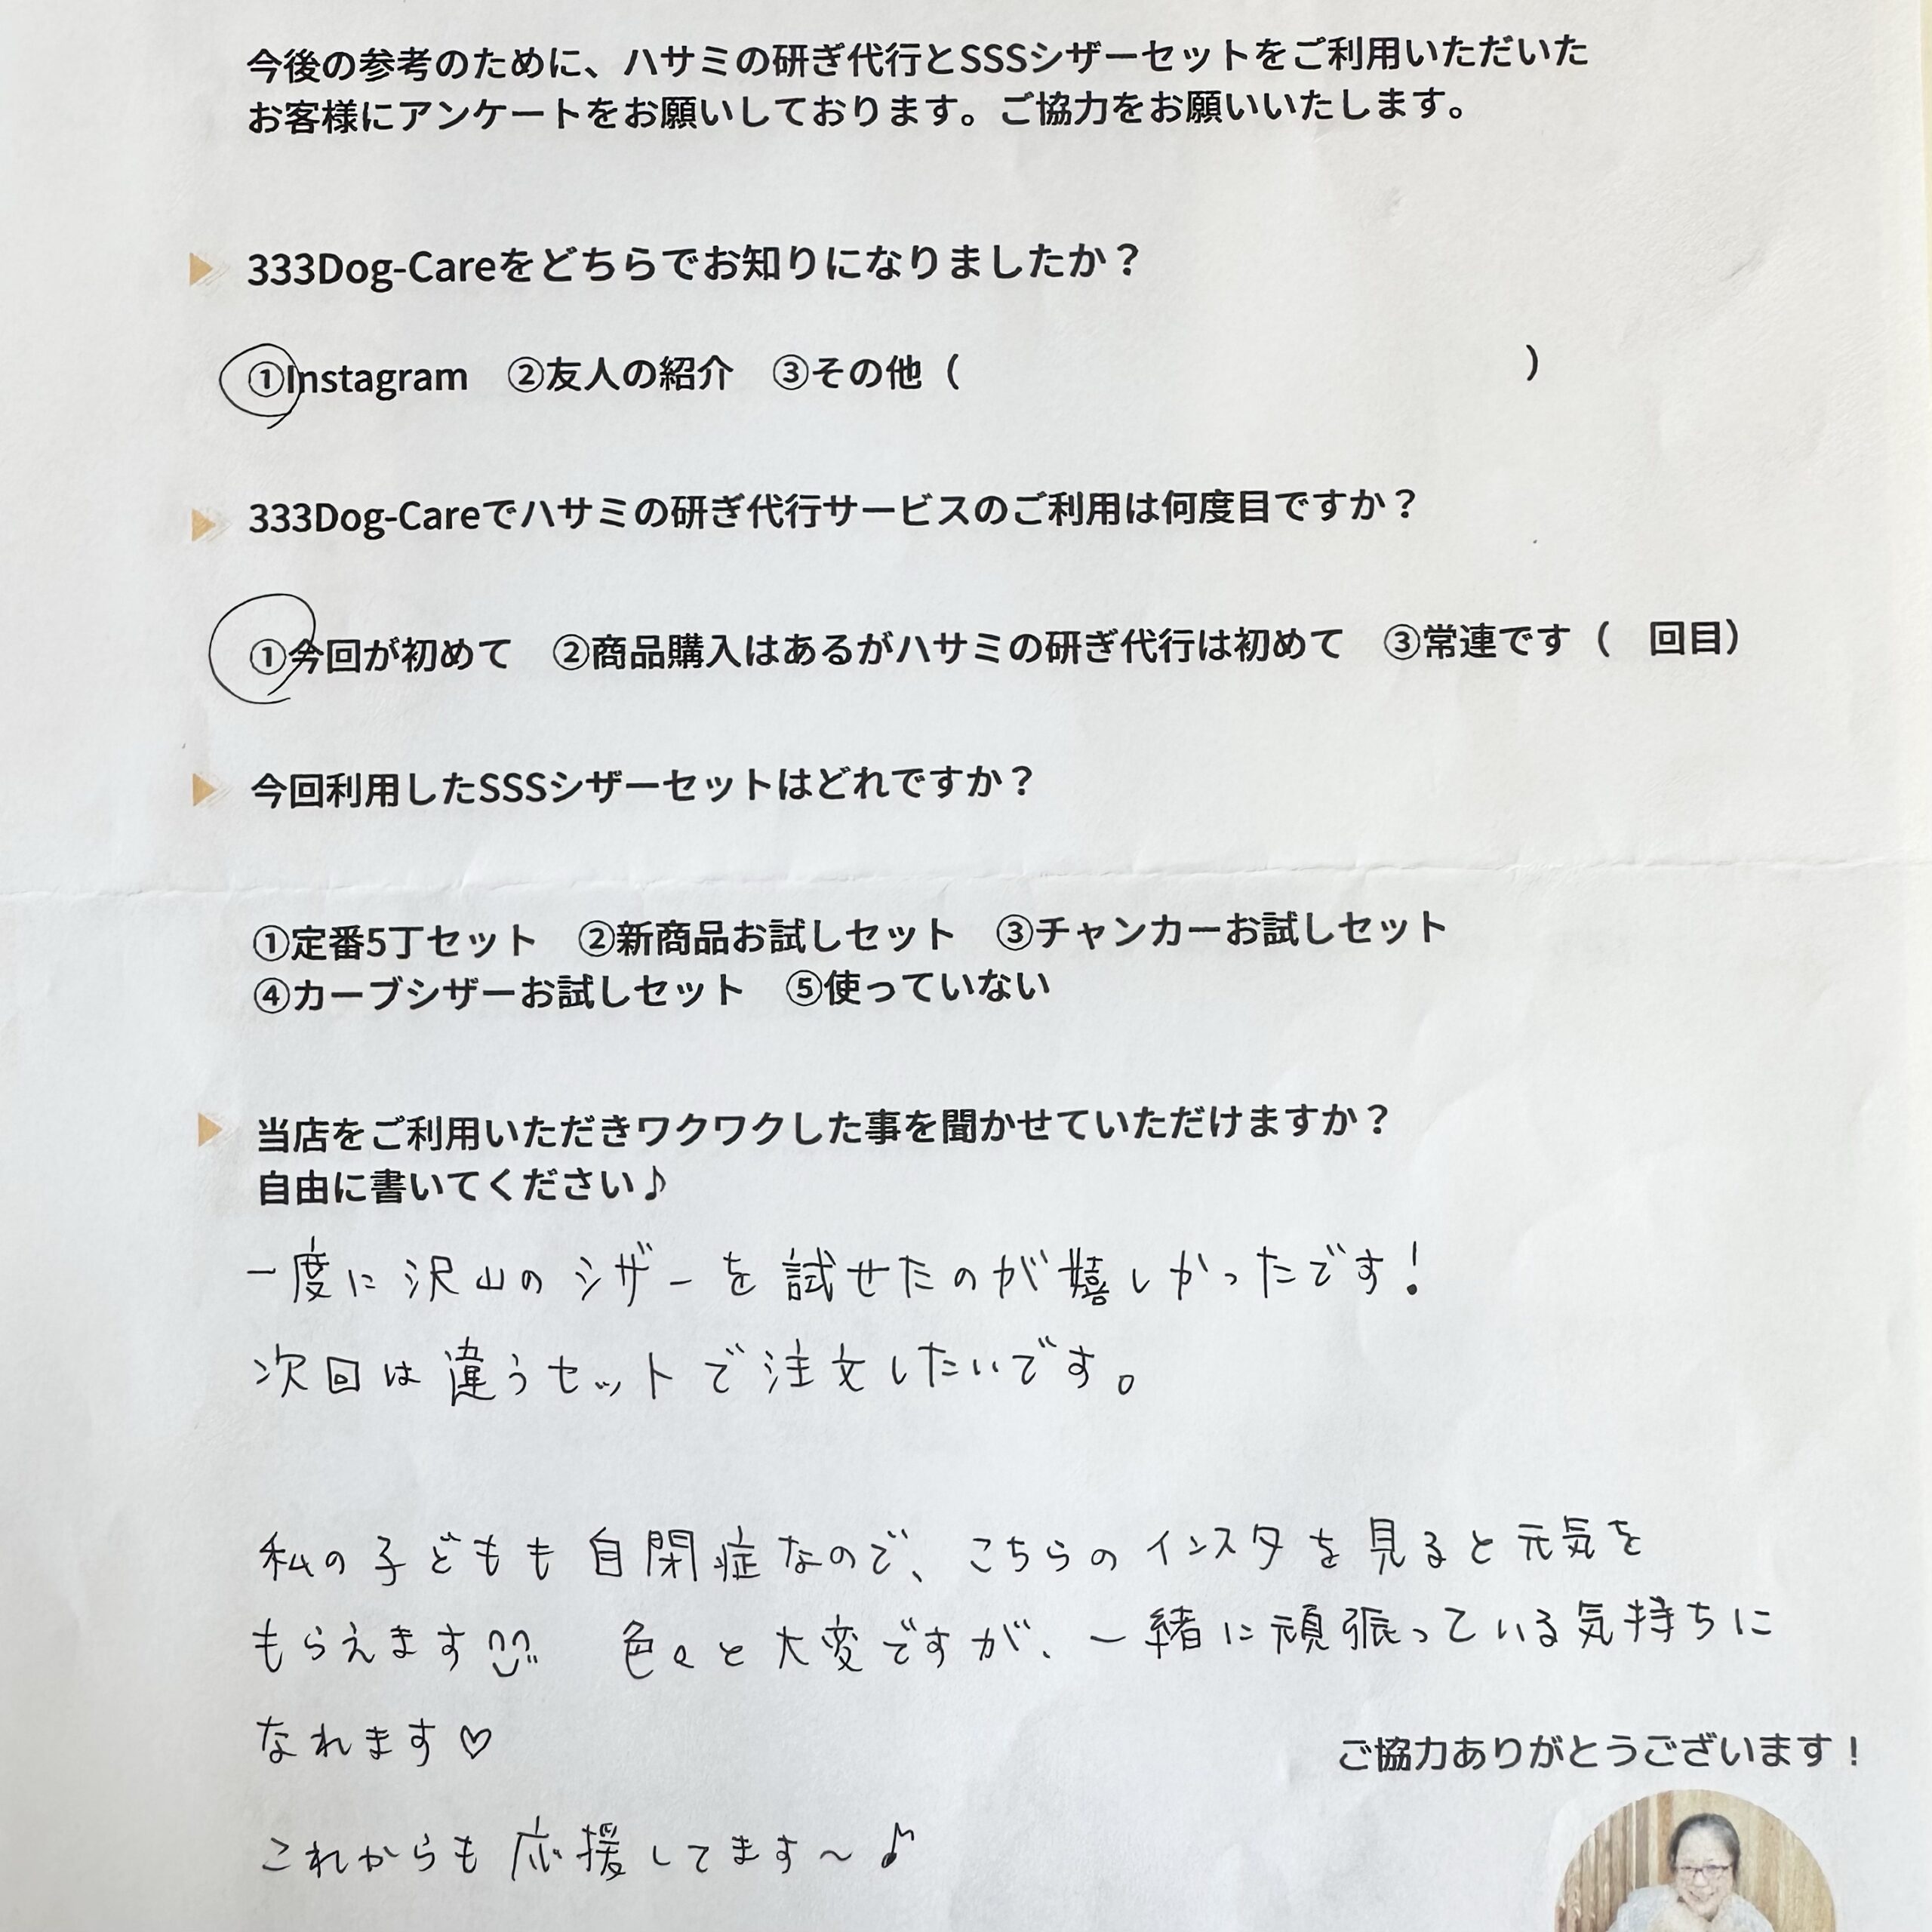 今後の参考のために、ハサミの研ぎ代行とSSSシザーセットをご利用いただいた
お客様にアンケートをお願いしております。ご協力をお願いいたします。
333Dog-Careをどちらでお知りになりましたか？
①Instagram　②友人の紹介　③その他（　　　　　　　　　　　　　　　）
333Dog-Careでハサミの研ぎ代行サービスのご利用は何度目ですか？
①今回が初めて　②商品購入はあるがハサミの研ぎ代行は初めて　③常連です（　回目）
今回利用したSSSシザーセットはどれですか？
①定番5丁セット　②新商品お試しセット　③チャンカーお試しセット
④カーブシザーお試しセット　⑤使っていない
当店をご利用いただきワクワクした事を聞かせていただけますか？
自由に書いてください♪
一度に沢山のシザーを試せたのが嬉しかったです！
次回は違うセットで注文したいです。
私の子どもも自閉症なので、こちらのインスタを見ると元気を
もらえます　色々と大変ですが、一緒に頑張っている気持ちに
なれます♡
ご協力ありがとうございます！
これからも応援してます〜♪